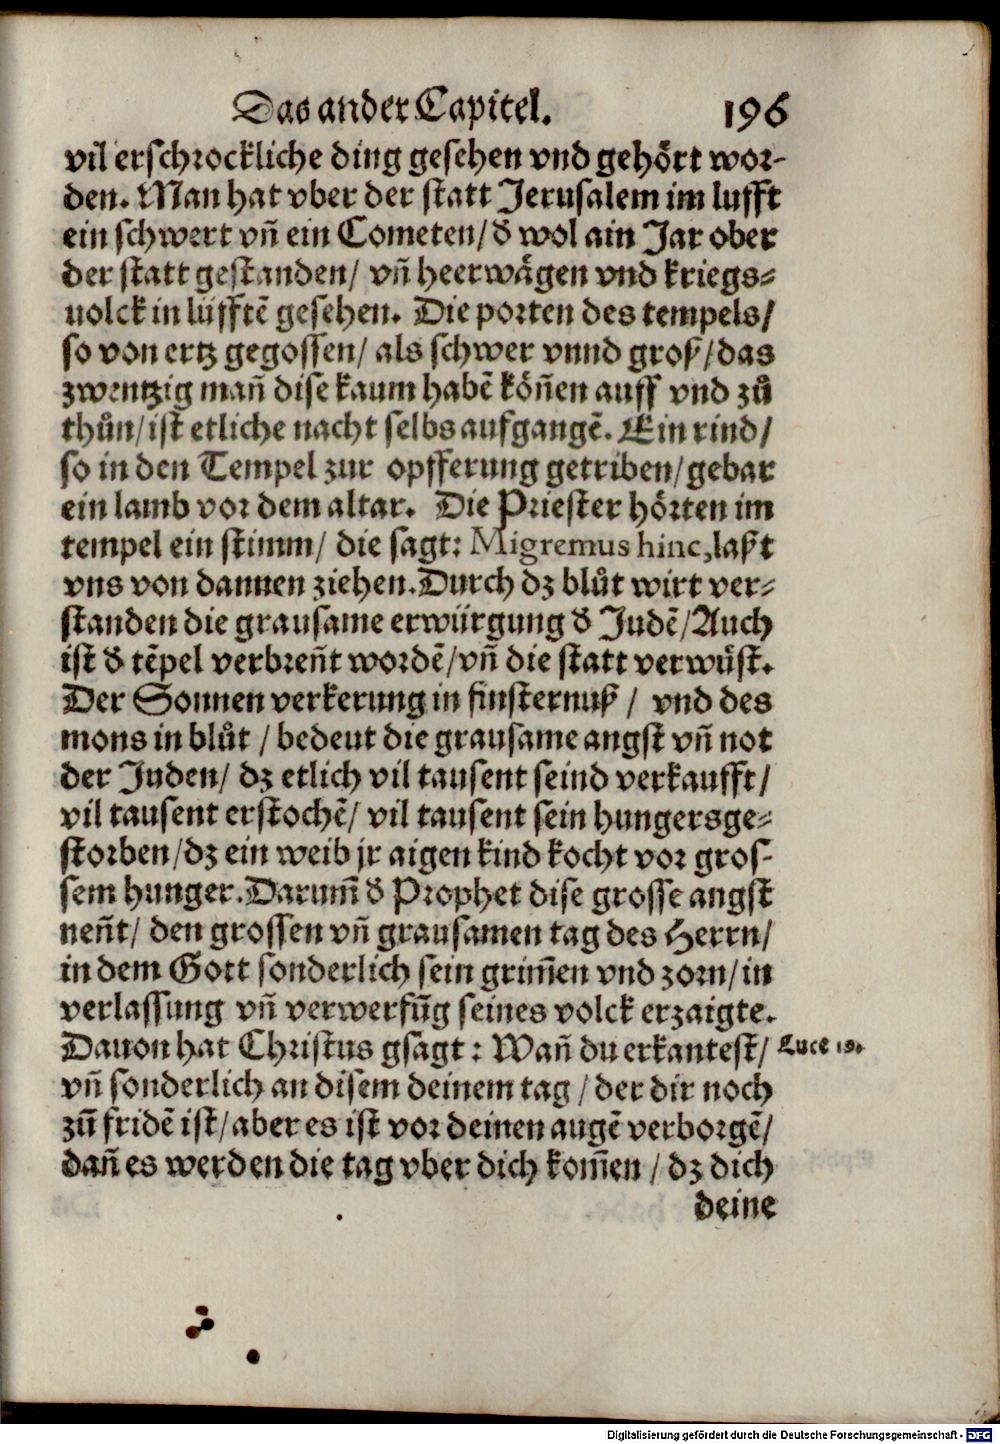 Das ander Capitel. 196
vil erschrockliche ding gesehen vnd gehört wor-
den. Man hat vber der statt Jerusalem im lufft
ein schwert vñ ein Cometen/ d̕ wol ain Jar ober
der statt gestanden/ vñ heerwågen vnd kriegs-
uolck in lüfftẽ gesehen. Die porten des tempels/
so von ertz gegossen/ als schwer vnnd groß/ das
zwentzig mañ dise kaum habẽ köñen auff vnd zů
thůn/ ist etliche nacht selbs aufgangẽ. Ein rind/
so in den Tempel zur opfferung getriben/ gebar
ein lamb vor dem altar. Die Priester hörten im
tempel ein stimm/ die sagt: Migremus hinc, laßt
vns von dannen ziehen. Durch dz blůt wirt ver-
standen die grausame erwürgung d̕ Judẽ/ Auch
ist d̕ tẽpel verbreñt wordẽ/ vñ die statt verwüst.
Der Sonnen verkerung in finsternuß / vnd des
mons in blůt / bedeut die grausame angst vñ not
der Juden/ dz etlich vil tausent seind verkaufft/
vil tausent erstochẽ/ vil tausent sein hungers ge-
storben/ dz ein weib jr aigen kind kocht vor gros-
sem hunger. Darum̃ d̕ Prophet dise grosse angst
neñt/ den grossen vñ grausamen tag des Herrn/
in dem Gott sonderlich sein grim̃en vnd zorn/ in
verlassung vñ verwerfũg seines volck erzaigte.
Dauon hat Christus gsagt: Wañ du erkantest/ Luce 19.
vñ sonderlich an disem deinem tag / der dir noch
zũ fridẽ ist/ aber es ist vor deinen augẽ verborgẽ/
dañ es werden die tag vber dich kom̃en / dz dich
deine
Digitalisierung gefördert durch die Deutsche Forschungsgemeinschaft - DFG